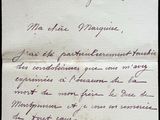 Ma chère Marquise,
J'ai été particulièrement touchée
des condoléances que vous m'avez
exprimées à l'occasion de la
mort de mon frère le Duc de
et je vous en remercie
de tout cœur